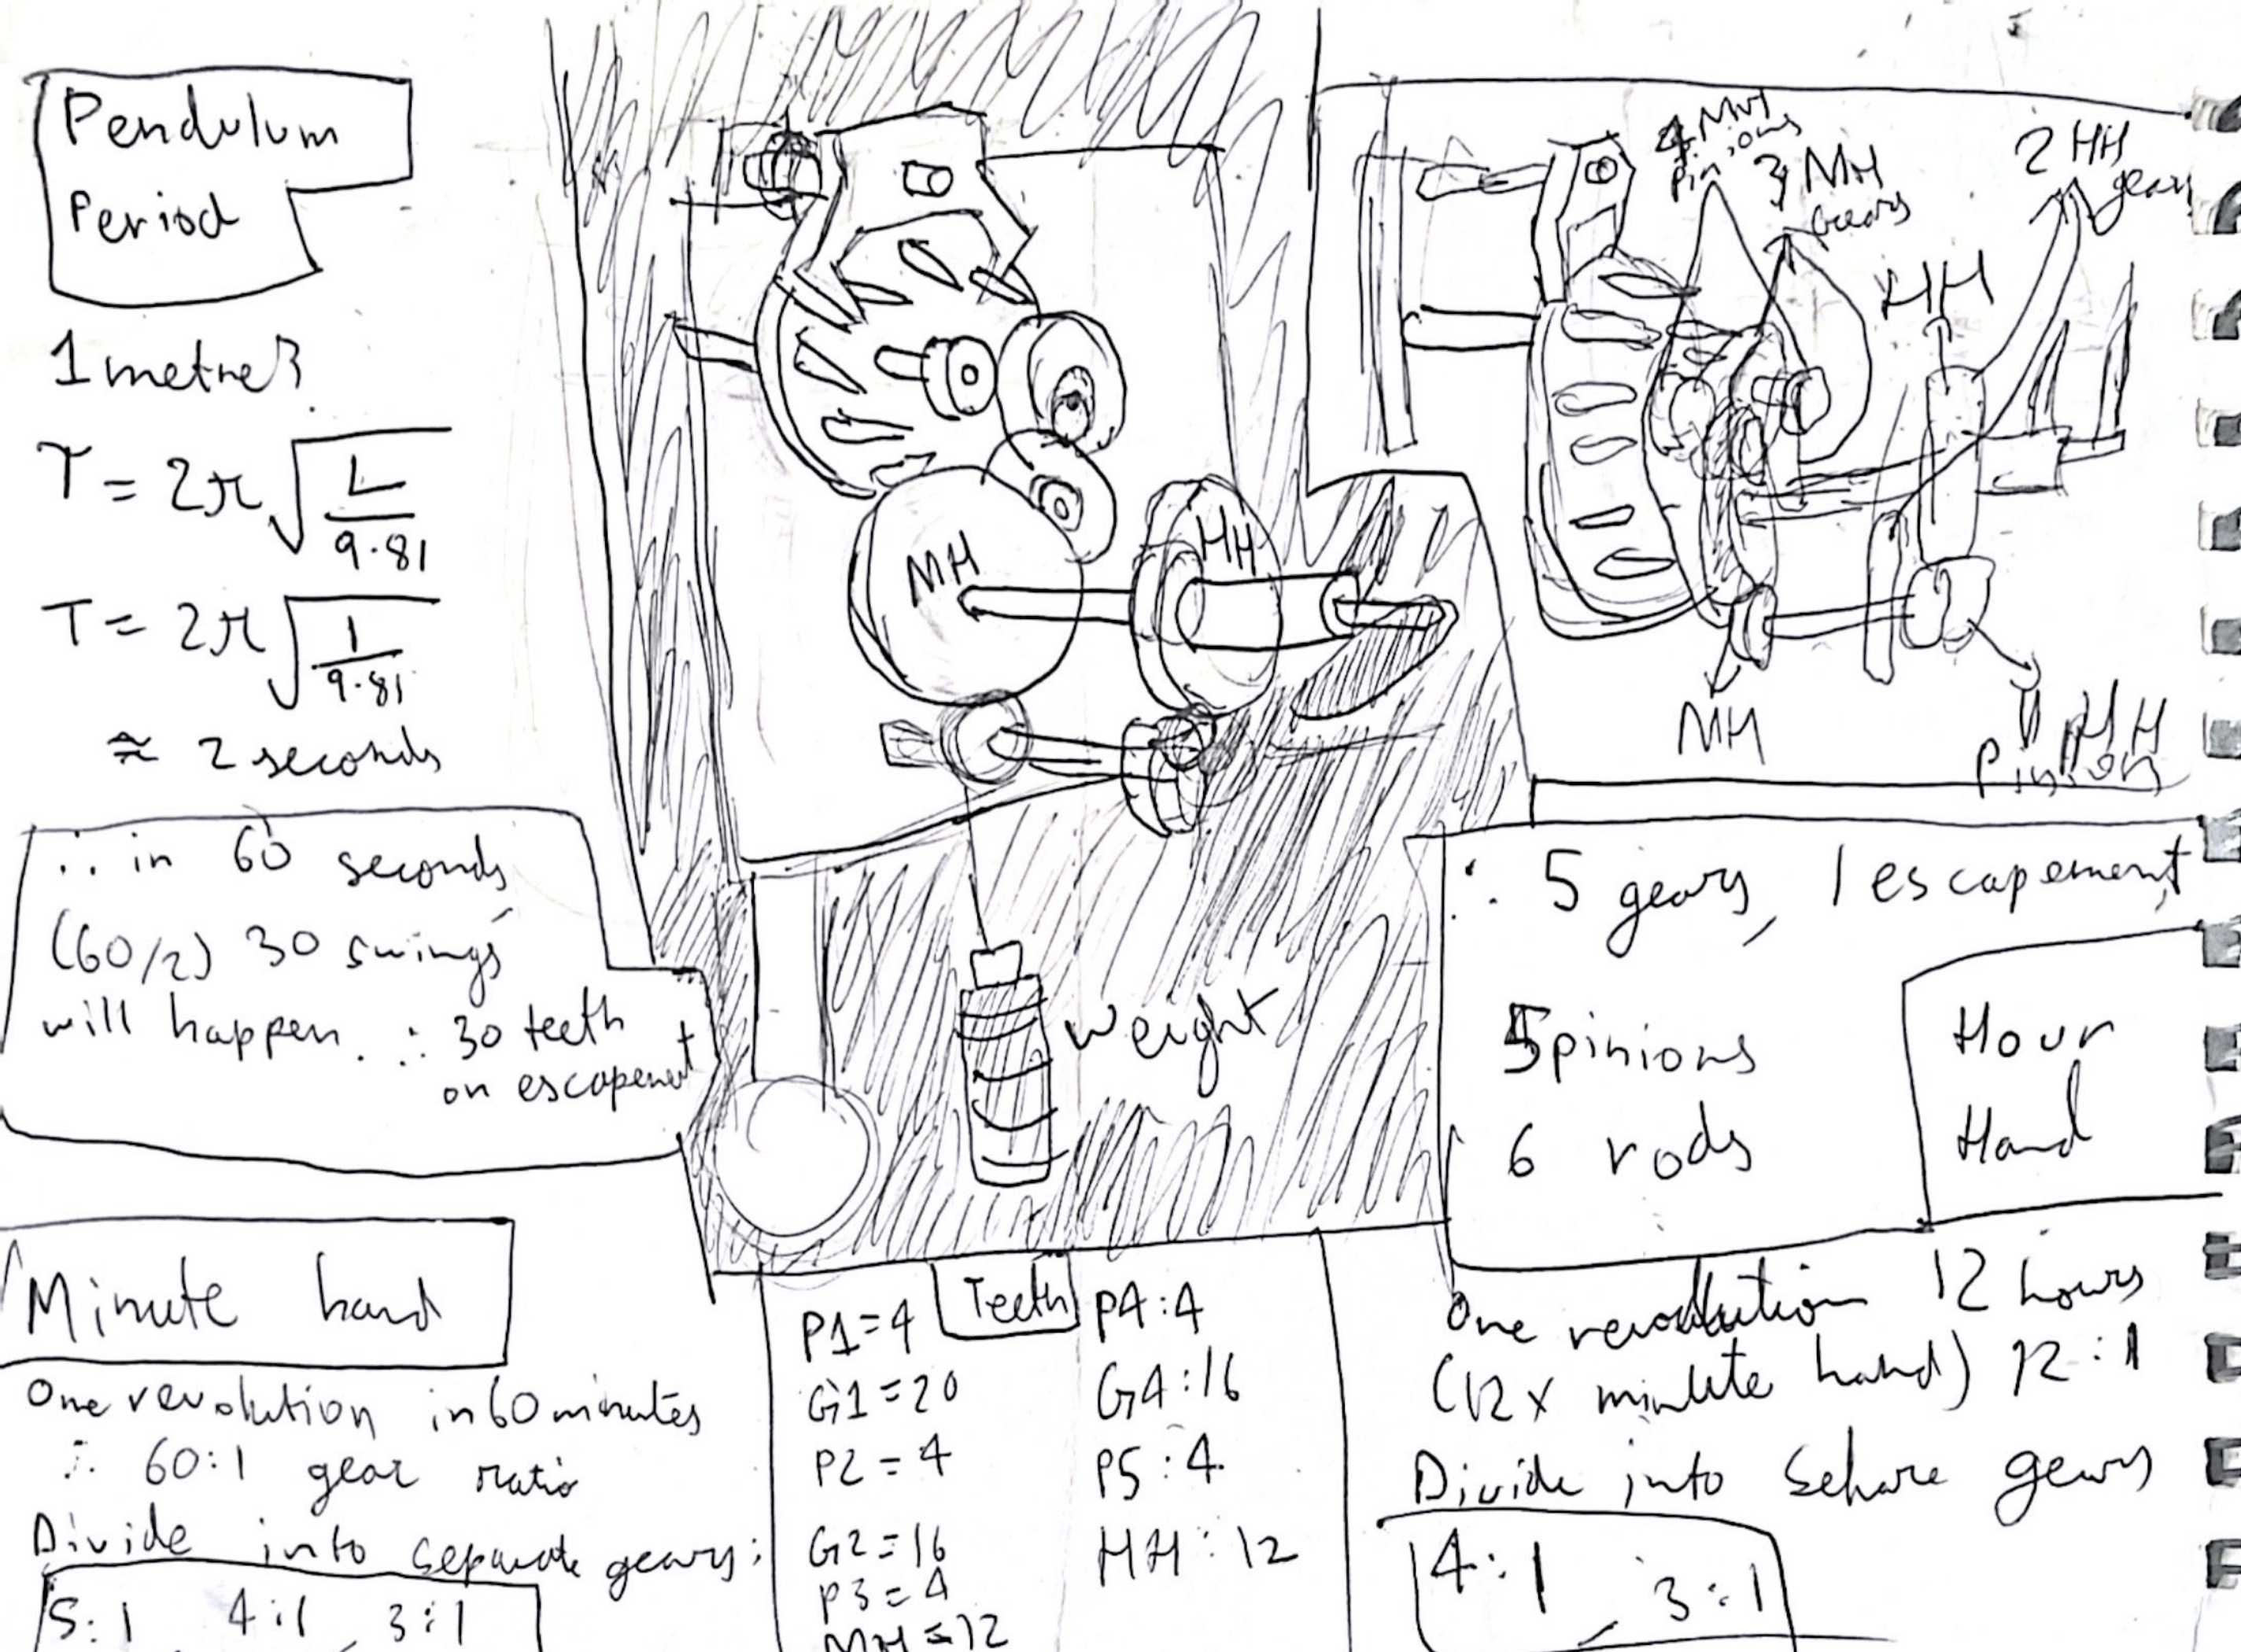 Pendulum
Period
1 metre?
T = 2π √(L/9.81)
T = 2π √(1/9.81)
≈ 2 seconds
∴ in 60 seconds
(60/2) 30 swings
will happen. ∴ 30 teeth
on escapement
Minute hand
One revolution in 60 minutes
∴ 60:1 gear ratio
Divide into separate gears:
5:1 4:1 3:1
MH
HH
weight
Teeth
P1=4
G1=20
P2=4
G2=16
P3=4
MH=12
P4:4
G4:16
P5:4
HH:12
4 MH
pinions
3 MH
Gears
2 HH
gears
HH
MH
HH
Pinions
∴ 5 gears, 1 escapement,
5 pinions
6 rods
Hour
Hand
One revolution 12 hours
(12x minute hand) 12:1
Divide into gears
4:1, 3:1